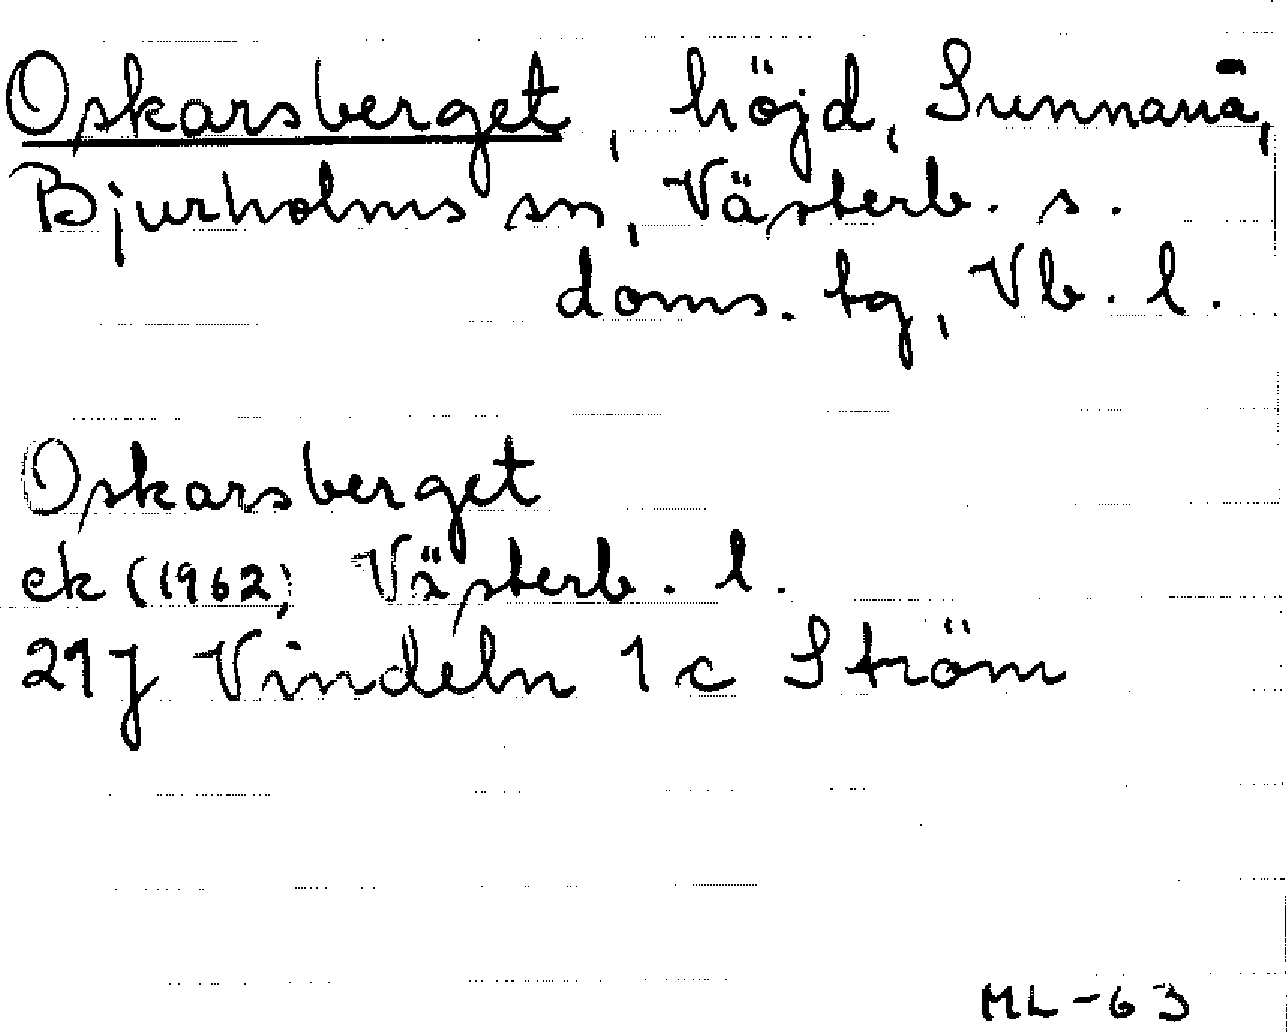 Oskarsberget, höjd, Sunnanå,
Bjurholms sn, Västerb. s.
doms. tg, Vb. l.
Oskarsberget
ek (1962) Västerb. l.
21J Vindeln 1 c Ström
ML-63